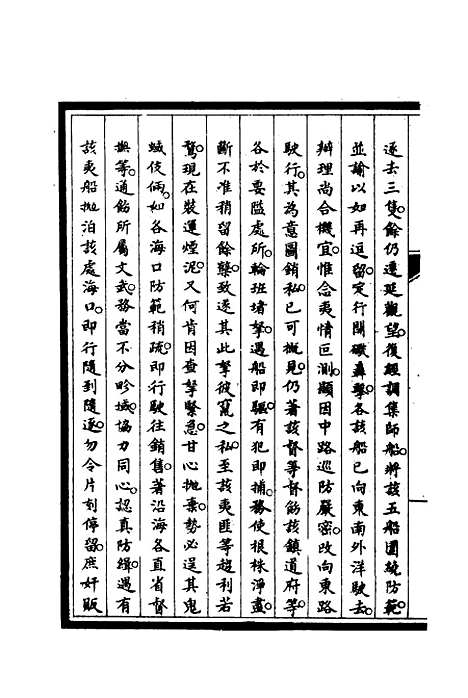 逐去三隻餘仍遷延觀望復經調集師船將該五船圍繞防範
並諭以如再逗留定行開礮轟擊各該船已向東南外洋駛去
辦理尚合機宜惟念夷情叵測顯因中路巡防嚴密改向東路
駛行其為意圖銷私已可概見仍著該督等督飭該鎮道府等
各於要隘處所輪班堵拏遇船即驅有犯即捕務使根株淨盡
斷不准稍留餘孽致遂其此拏彼竄之私至該夷匪等趨利若
鶩現在裝運煙泥又何肯因查拏緊急甘心拋棄勢必逞其鬼
蜮伎倆如各海口防範稍疏即行駛往銷售著沿海各直省督
撫等通飭所屬文武務當不分畛域協力同心認真防緝遇有
該夷船拋泊該處海口即行隨到隨逐勿令片刻停留庶奸販